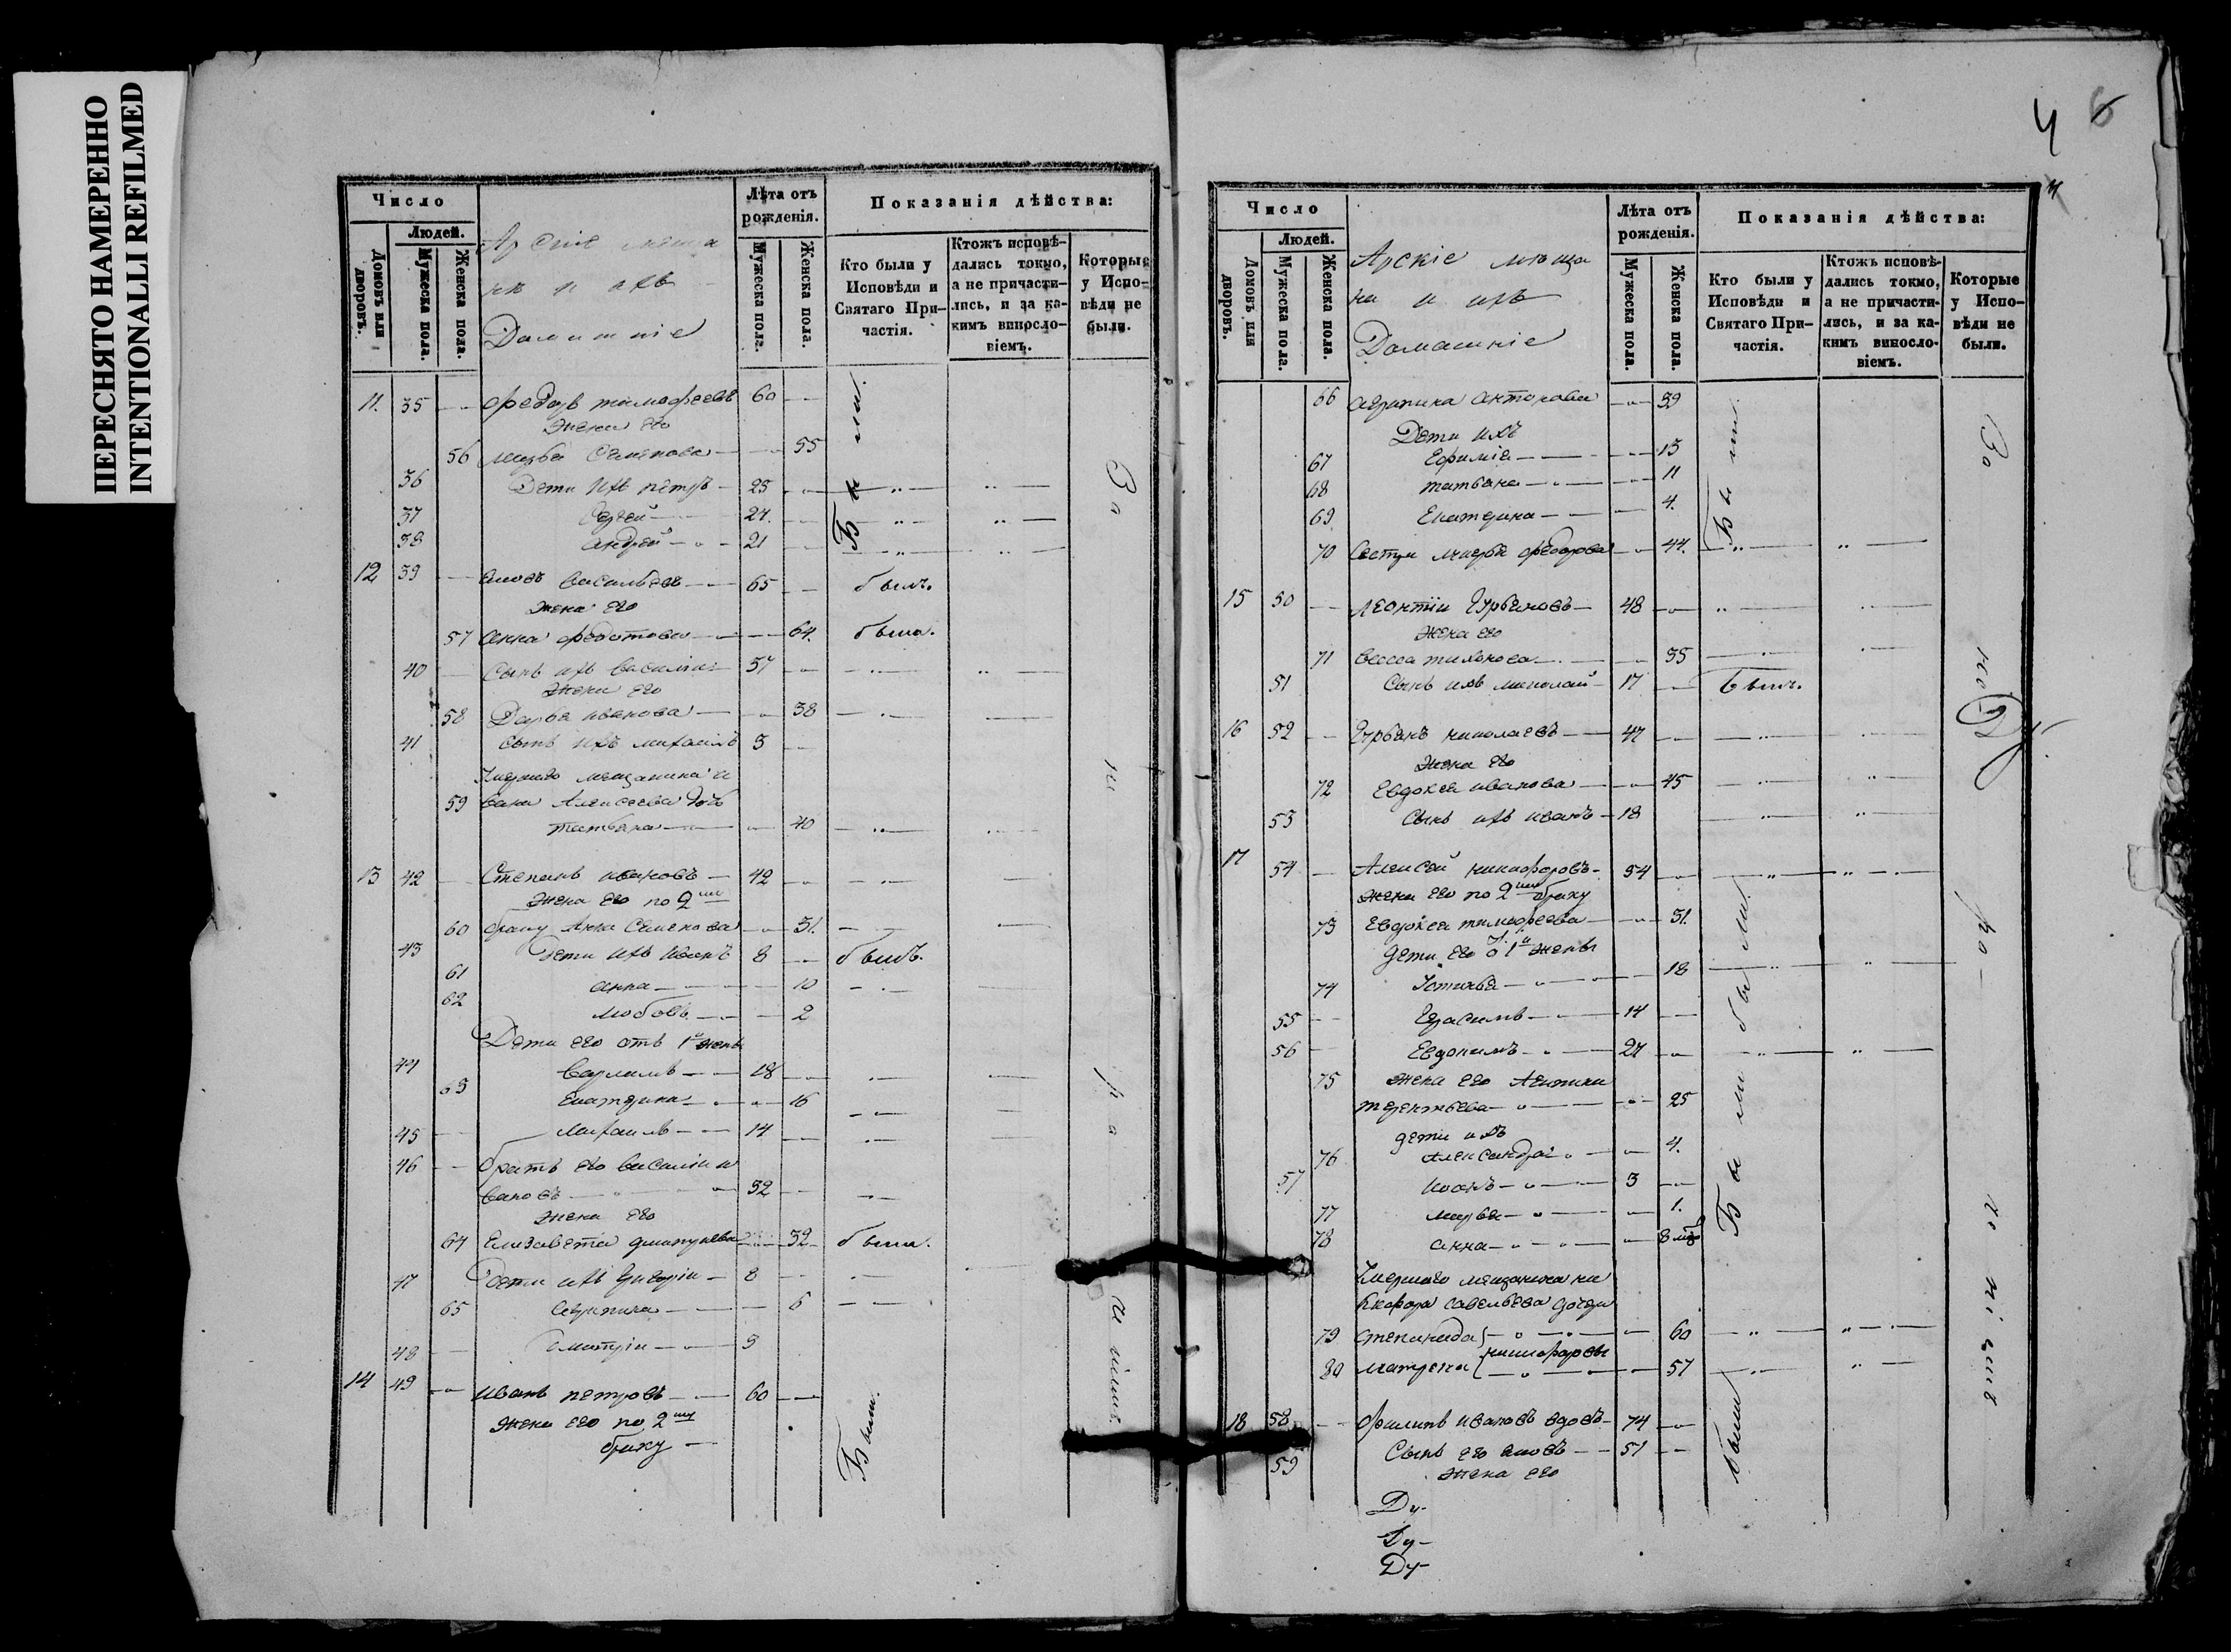 ПЕРЕСНЯТО НАМЕРЕННО
INTENTIONALLI REFILMED
Число
Людей.
Домовъ или дворовъ.
Мужеска пола.
Женска пола.
Арскіе меща
не и ихъ
Домашніе
Лѣта отъ
рожденія.
Мужеска пола.
Женска пола.
Показанія дѣйства:
Кто были у
Исповѣди и
Святаго При-
частія.
Ктожъ исповѣ-
дались токмо,
а не причасти-
лись, и за ка-
кимъ винosло-
віемъ.
Которые
у Испо-
вѣди не
были.
11. 35 Федоръ тимофеевъ 60
жена его
56 марфа Семенова 55
36 Дети ихъ петръ 25
37 Сергей 24.
38 андрей 21
Были.
12 39 Яковъ васильевъ 65 былъ.
жена его
57 анна федотова 64. была.
40 Сынъ ихъ василій 37
жена его
58 Дарья иванова 38
41 сынъ ихъ михаилъ 3
Умершаго мещанина и
59 вана Алексеева дочь
татьяна 40
13 42 Степанъ ивановъ 42
жена его по 2му
60 браку Анна Семенова 31.
43 Дети ихъ Иванъ 8 былъ.
61 анна 10
62 любовь 2
Дети его отъ 1й жены
44 Варламъ 18
63 Екатерина 16
45 Михаилъ 14
46 братъ его василій и
вановъ 32
жена его
64 Елизавета дмитриева 32 была.
47 Дети ихъ Григорій 8
65 агрипина 6
48 Дмитрій 3
14 49 Иванъ петровъ 60
жена его по 2му
браку
Были.
4 6
Число
Людей.
Домовъ или дворовъ.
Мужеска пола.
Женска пола.
Арскіе меща
не и ихъ
Домашніе
Лѣта отъ
рожденія.
Мужеска пола.
Женска пола.
Показанія дѣйства:
Кто были у
Исповѣди и
Святаго При-
частія.
Ктожъ исповѣ-
дались токмо,
а не причасти-
лись, и за ка-
кимъ винocло-
віемъ.
Которые
у Испо-
вѣди не
были.
66 агрипина антонова 39
Дети ихъ
67 Ефимія 13
68 татьяна 11
69 Екатерина 4.
70 Сестра марфа федорова 44.
Были
15 50 Леонтій Гурьяновъ 48
жена его
71 васса тихонова 35
51 Сынъ ихъ николай 17 Былъ.
16 52 Гурьянъ николаевъ 47
жена его
72 Евдокея иванова 45
53 Сынъ ихъ иванъ 18
17 54 Алексей никифоровъ 54
жена его по 2му браку
73 Евдокея тимофеева 51.
дети его о 1й жены
74 Устинья 18
55 Герасимъ 14
56 Евдокимъ 27
75 жена его
терентьева 25
дети ихъ
76 Александра 4.
57 Иоанъ 3
77 марья 1.
78 анна 8
были
Были
Умершаго мещанина ни
кифора савельева дочери
79 степанида 60
никифоровы
80 матрена 57
18 58 филипъ ивановъ вдовъ 74
59 Сынъ его яковъ 51
жена его
были
Ду-
Ду-
Ду-